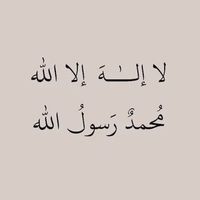 لا إلـــٰـهَ إلا الله
مُحمدٌ رَسولُ الله